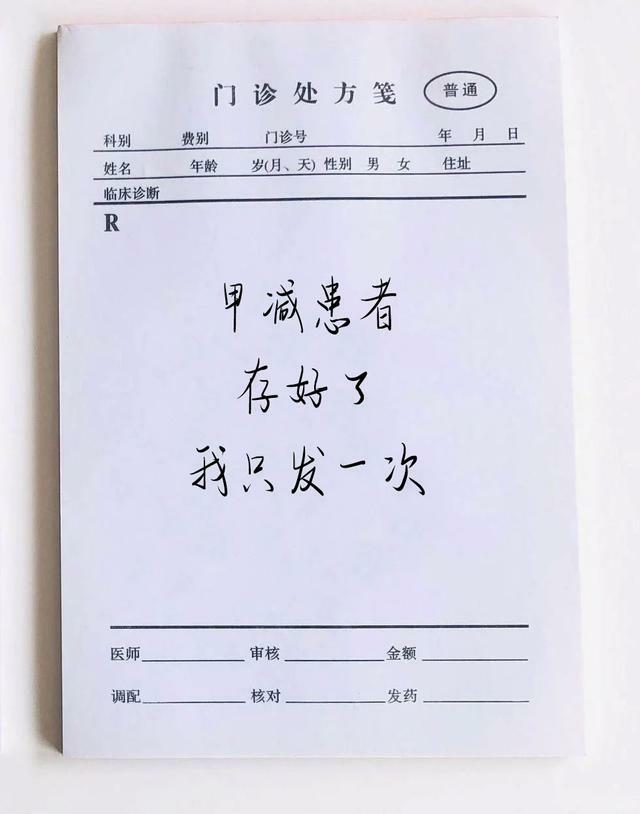 门诊处方笺 普通
科别 费别 门诊号 年 月 日
姓名 年龄 岁(月、天) 性别 男 女 住址
临床诊断
R
甲减患者
存好了
我只发一次
医师 审核 金额
调配 核对 发药